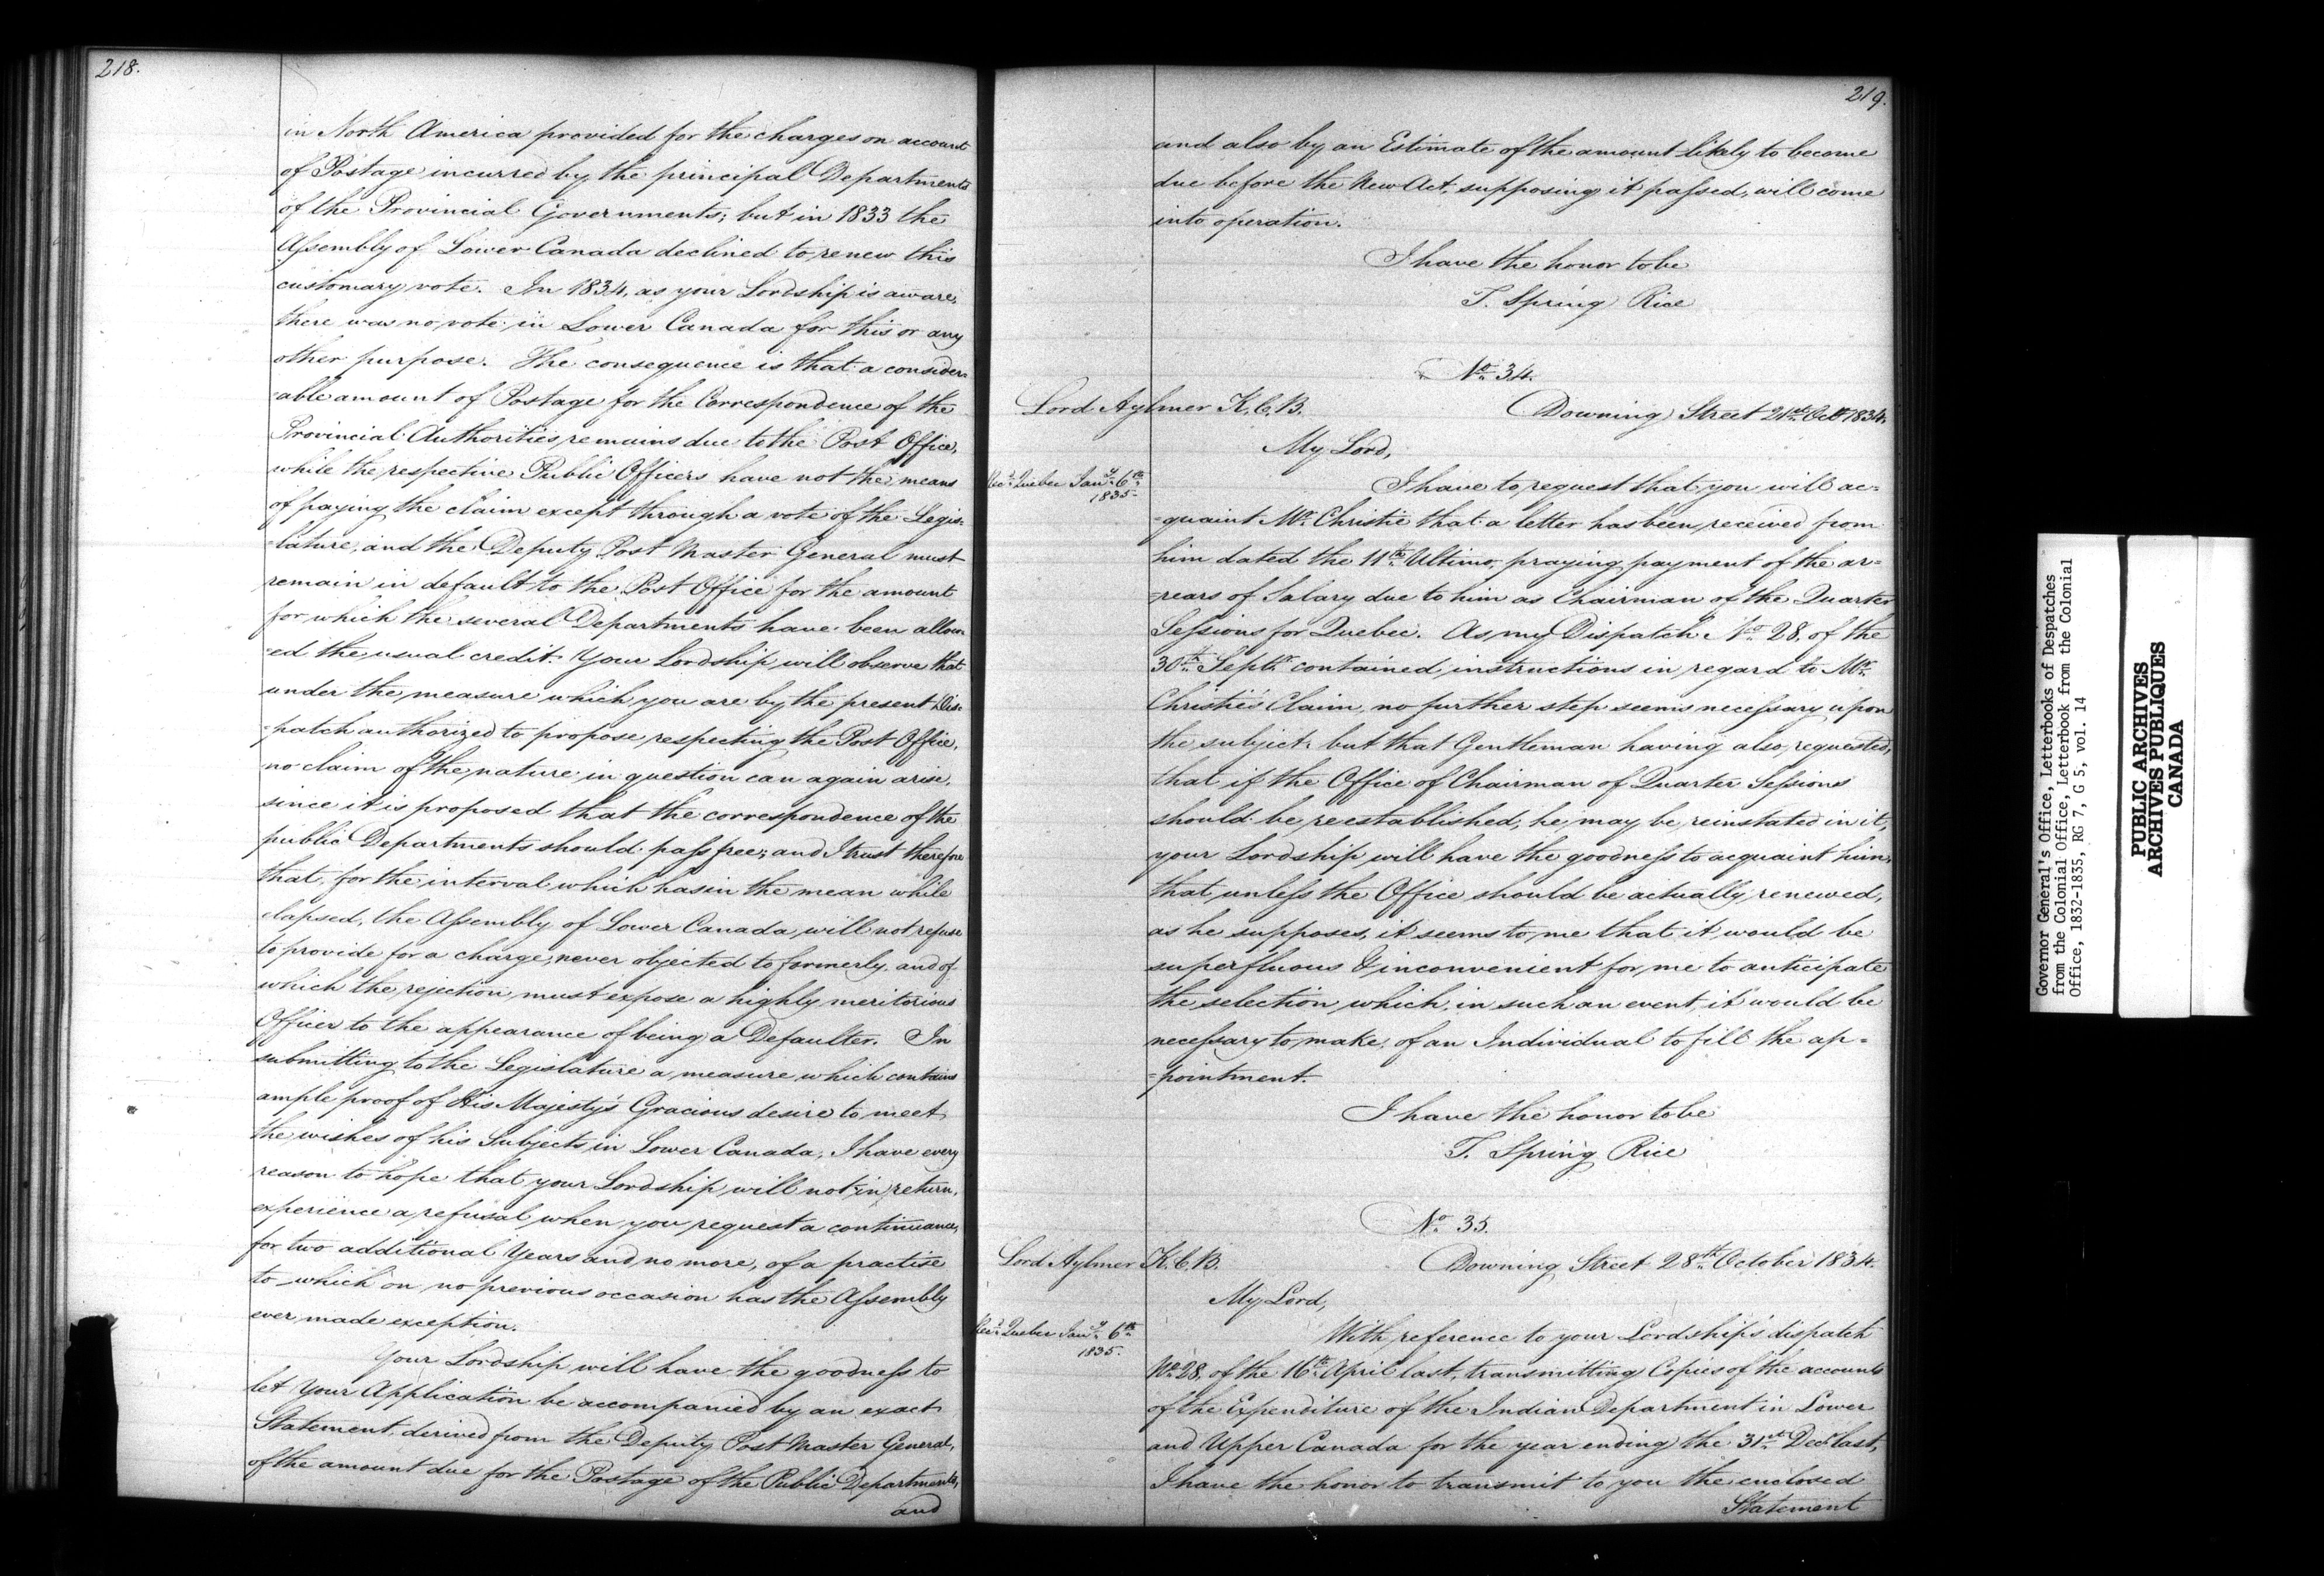 218.
in North America provided for the charges on account
of Postage incurred by the principal Departments
of the Provincial Governments; but in 1833 the
Assembly of Lower Canada declined to renew this
customary vote. In 1834, as your Lordship is aware,
there was no vote in Lower Canada for this or any
other purpose. The consequence is that a consider=
=able amount of Postage for the Correspondence of the
Provincial Authorities remains due to the Post Office,
while the respective Public Officers have not the means
of paying the claim except through a vote of the Legis=
=lature, and the Deputy Post Master General must
remain in default to the Post Office for the amount
for which the several Departments have been allow
=ed the usual credit. Your Lordship will observe that
under the measure which you are by the present Dis=
=patch authorized to propose respecting the Post Office,
no claim of the nature in question can again arise,
since it is proposed that the correspondence of the
public Departments should pass free; and I trust therefore
that, for the interval which has in the mean while
elapsed, the Assembly of Lower Canada will not refuse
to provide for a charge, never objected to formerly, and of
which the rejection must expose a highly meritorious
Officer to the appearance of being a Defaulter. In
submitting to the Legislature a measure which contains
ample proof of His Majesty's Gracious desire to meet
the wishes of his Subjects in Lower Canada, I have every
reason to hope that your Lordship will not in return,
experience a refusal when you request a continuance,
for two additional Years and no more, of a practise
to which on no previous occasion has the Assembly
ever made exception.
Your Lordship will have the goodness to
let Your Application be accompanied by an exact
Statement, derived from the Deputy Post Master General,
of the amount due for the Postage of the Public Departments,
and
219.
and also by an Estimate of the amount likely to become
due before the New Act, supposing it passed, will come
into operation.
I have the honor to be
T. Spring Rice
No. 34.
Lord Aylmer K.C.B. Downing Street 21st Octr 1834.
My Lord,
Recd. Quebec Jany. 6th
1835.
I have to request that you will ac=
=quaint Mr. Christie that a letter has been received from
him dated the 11th Ultimo, praying payment of the ar=
=rears of Salary due to him as Chairman of the Quarter
Sessions for Quebec. As my Dispatch No. 28. of the
30th Septr. contained instructions in regard to Mr.
Christie's Claim, no further step seems necessary upon
the subject, but that Gentleman having also requested,
that if the Office of Chairman of Quarter Sessions
should be reestablished, he may be reinstated in it,
your Lordship will have the goodness to acquaint him,
that, unless the Office should be actually renewed,
as he supposes, it seems to me that it would be
superfluous & inconvenient for me to anticipate
the selection which, in such an event, it would be
necessary to make, of an Individual to fill the ap=
=pointment.
I have the honor to be
T. Spring Rice
No. 35.
Lord Aylmer K.C.B. Downing Street 28th October 1834.
My Lord,
Recd. Quebec Jany. 6th
1835.
With reference to your Lordship's dispatch
No. 28, of the 16th April last, transmitting Copies of the accounts
of the Expenditure of the Indian Department in Lower
and Upper Canada for the year ending the 31st Decr last,
I have the honor to transmit to you the enclosed
Statement
Governor General's Office, Letterbooks of Despatches
from the Colonial Office, Letterbook from the Colonial
Office, 1832-1835, RG 7, G 5, vol. 14
PUBLIC ARCHIVES
ARCHIVES PUBLIQUES
CANADA